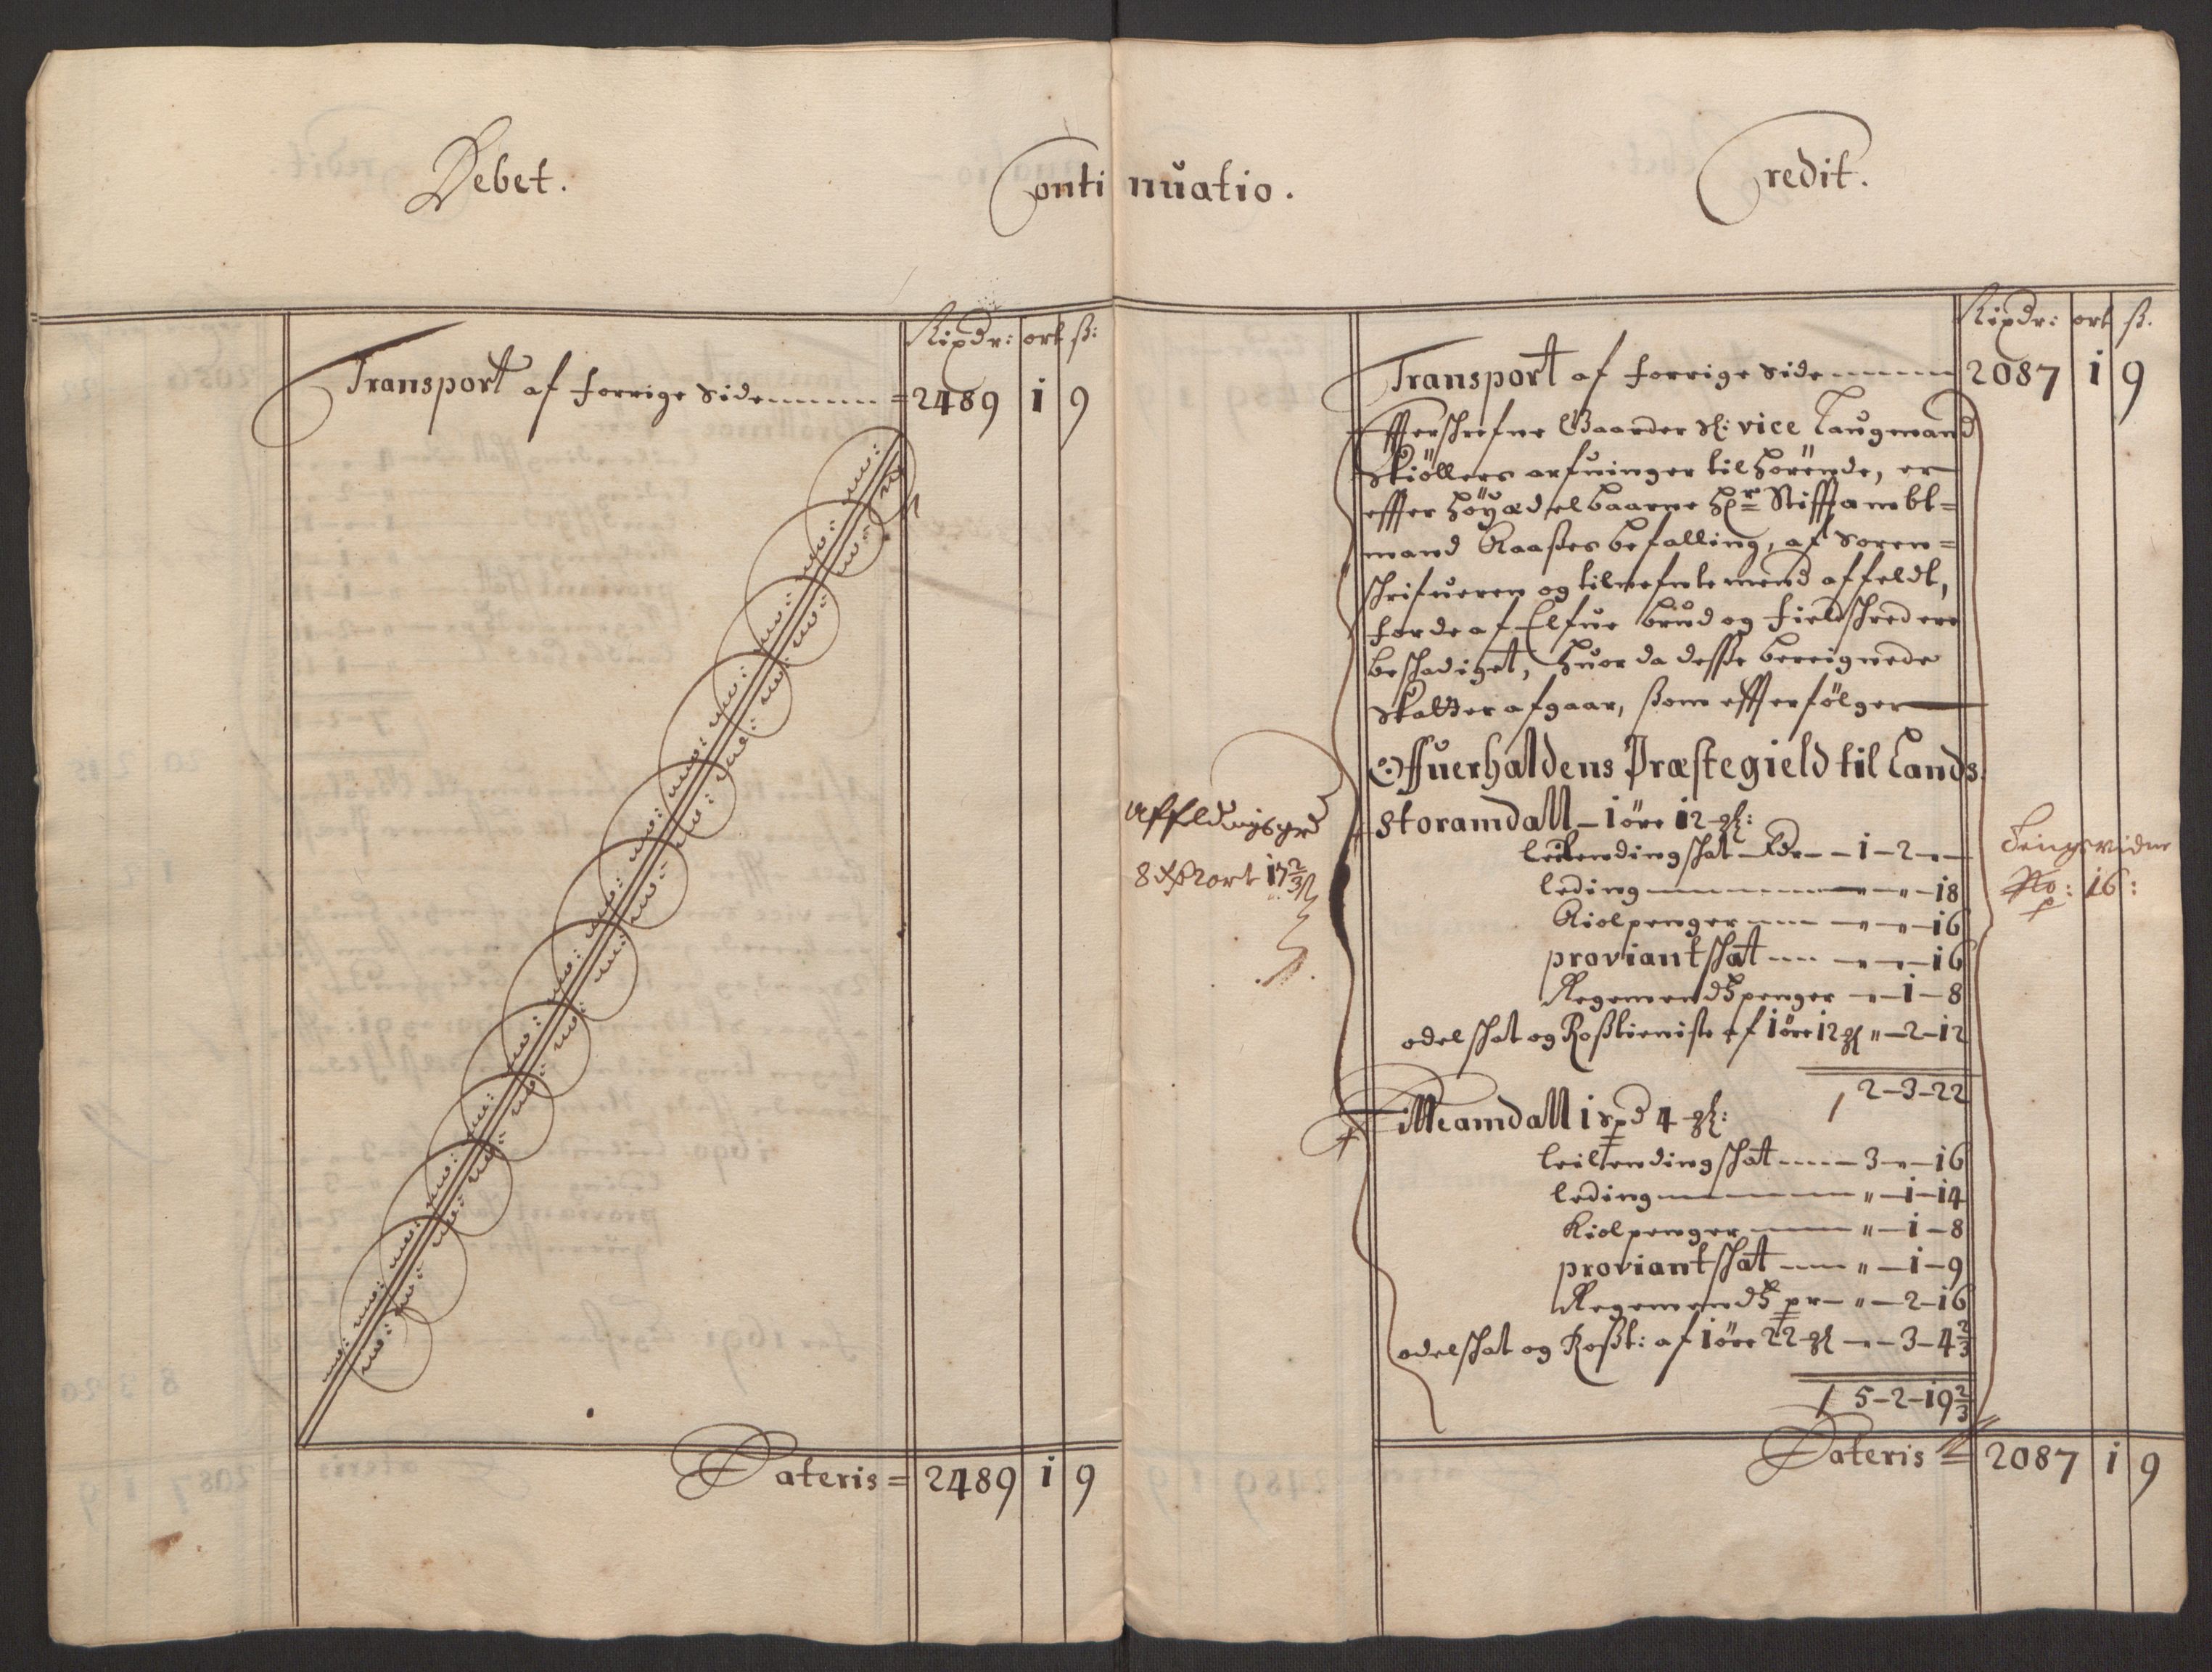 Debet.
Continuatio.
Credit.
Rixdr: ort ß:
Transport af forrige Side = 2489 1 9
Lateris = 2489 1 9
Rixdr: ort ß.
Transport af forrige Side 2087 1 9
Effterschrefne Gaarder Sl: vice Laugmand
Skiöllers arfuinger tilhörende, er
effter höyædelbaarne Hr Stifftambt=
mand Kaaßes befalling, af Soren=
schrifueren og tilnefnte mend affeldt,
forde af Elfue brud og fieldschred ere
beschadiget, huor da desse bereignede
Skatter afgaar, som effterfölger
Offuerhaldens Præstegield til Lands.
Storamdall – 1 öre 12 gl:
Leilendingschat – Rdr – 1 – 2 – „
leding – „ – „ – 18
Kiolpenger – „ – „ – 16
proviantschat – „ – „ – 16
Regemendß penger – „ – 1 – 8
odelschat og Roßtieniste af 1 öre 12 gl „ – 2 – 12
2 – 3 – 22
Lilleamdall 1 spd 4 gl:
leilendingschat – 3 – „ – 16
leding – „ – 1 – 14
Kiolpenger – „ – 1 – 8
proviantschat – „ – 1 – 9
Regemendß pr – „ – 2 – 16
odelschat og Roßt: af 1 öre 22 gl – „ – 3 – 4 2/3
5 – 2 – 19 2/3
Lateris = 2087 1 9
Affeldningsgrd
8 Rdr 2 ort 17 2/3 ß
Tingsvidne
No: 16: